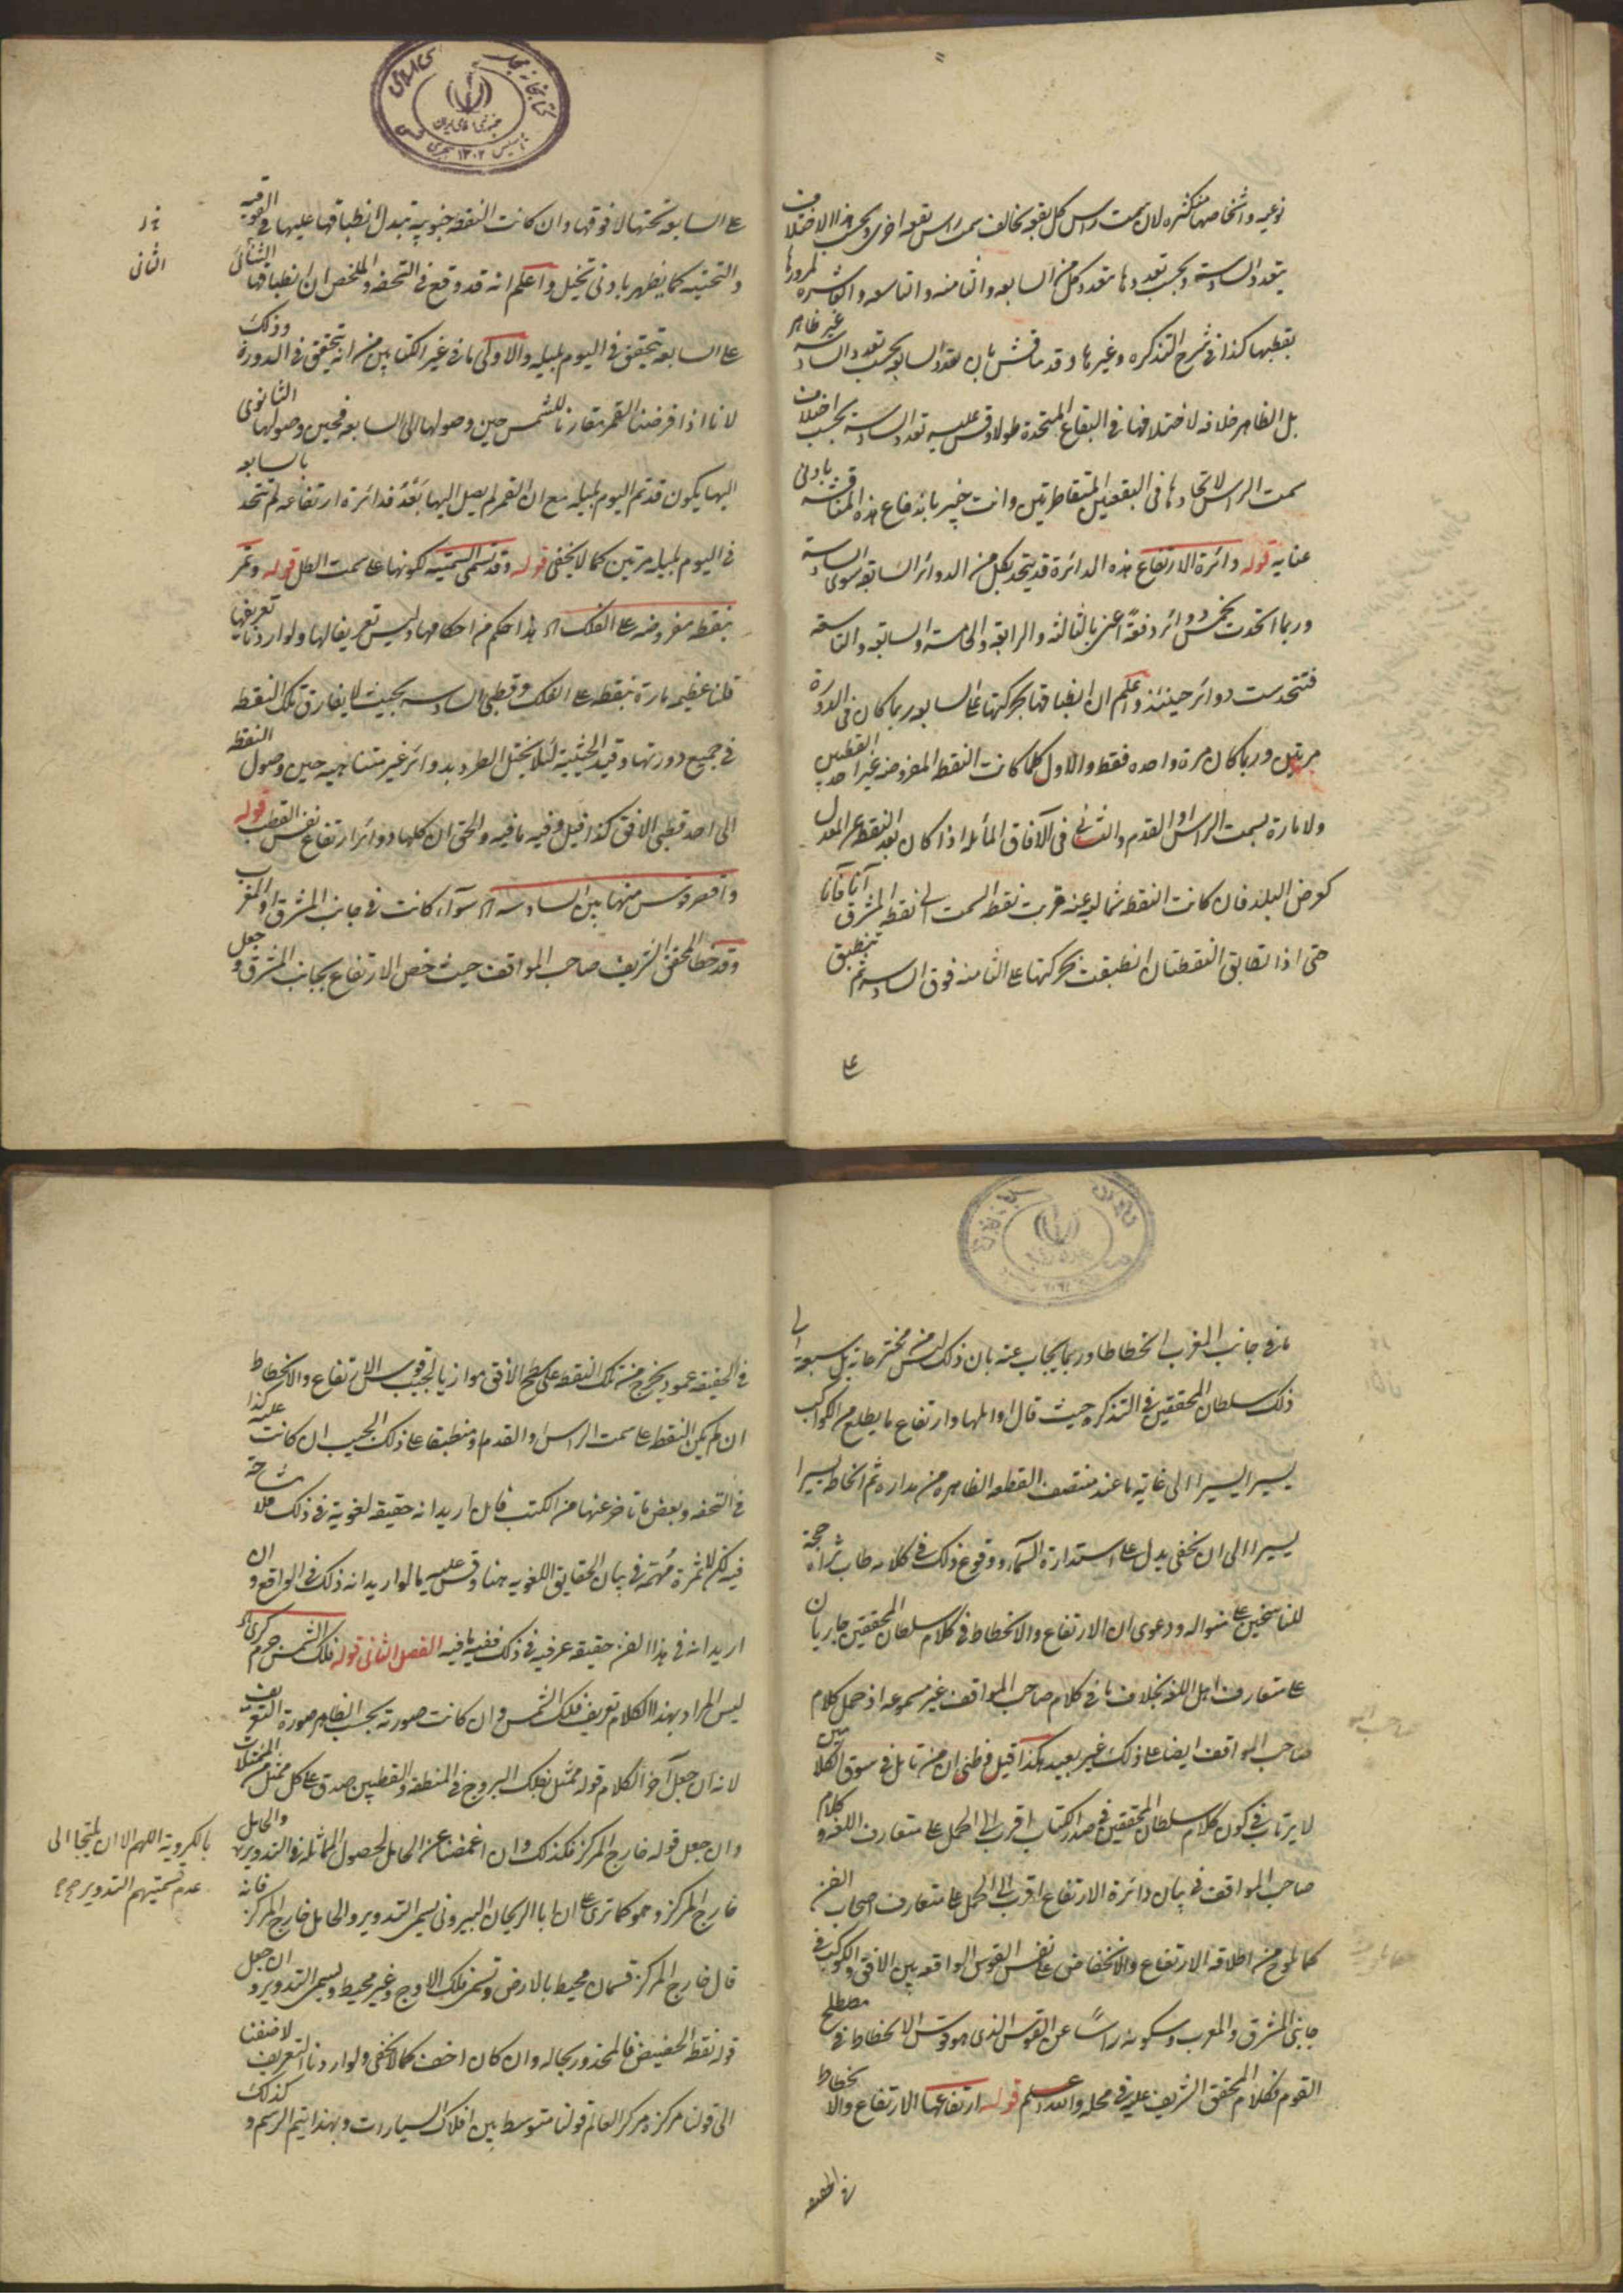 نوعية واشخاصها متكثرة لان سمت راس كل بقعة يخالف سمت راس بقعة اخرى وبحسب هذا الاختلاف
يتعدد السادسة وبحسب تعددها يتعدد كل من السابعة والثامنة والتاسعة والعاشرة لمرورها
بقطبيها كذا في شرح التذكرة وغيرها وقد يناقش بان تعدد السابعة بحسب تعدد السادسة غير ظاهر
بل الظاهر خلافه لاختلافها في البقاع المتحدة طولا وقس عليه تعدد السادسة بحسب اختلاف
سمت الراس لاتحادها في البقعتين المتقاطرتين وانت خبير باندفاع هذه المناقشة بادنى
عناية قوله دائرة الارتفاع هذه الدائرة قد يتحد بكل من الدوائر السابقة سوى السادسة
وربما اتحدت بخمس دوائر دفعة اعني بالثالثة والرابعة والخامسة والسابعة والتاسعة
فتتحد ست دوائر حينئذ واعلم ان انطباقها بحركتها على السابعة ربما كان في الدورة
مرتين وربما كان مرة واحدة فقط والاول كلما كانت النقطة المفروضة غير احد القطبين
ولا مارة بسمت الراس او القدم والثاني في الآفاق المائلة اذا كان بعد النقطة عن المعدل
كعرض البلد فان كانت النقطة شمالية عنه قربت نقطة السمت الى نقطة المشرق آنا فآنا
حتى اذا تطابق النقطتان انطبقت بحركتها على الثامنة فوق السادسة ثم تنطبق
على
على السابعة تحتها لا فوقها وان كانت النقطة جنوبية تبدل انطباقها عليها في الفوقية
والتحتية كما يظهر بادنى تخيل واعلم انه قد وقع في التحفة والملخص ان انطباقها الثاني
على السابعة يتحقق في اليوم بليله والاولى ما في غير الكتابين من انه يتحقق في الدورة وذلك
لانا اذا فرضنا القمر مقارنا للشمس حين وصولها الى السابعة فحين وصولها الثانوى
اليها يكون قد تم اليوم بليله مع ان القمر لم يصل اليها بعد فدائرة ارتفاعه لم تتحد بالسابعة
في اليوم بليله مرتين كما لا يخفى قوله وقد تسمى السمتية لكونها على سمت الظل قوله وتمر
بنقطة مفروضة على الفلك اه هذا حكم من احكامها وليس تعريفا لها ولو اردنا تعريفها
قلنا عظيمة مارة بنقطة على الفلك وقطبي السادسة بحيث لا يفارق تلك النقطة
في جميع دورتها وقيد الحيثية لئلا يختل الطرد بدوائر غير متناهية حين وصول النقطة
الى احد قطبي الافق كذا قيل وفيه ما فيه والحق ان كلها دوائر ارتفاع نفس القطب قوله
واقصر قوس منها بين السادسة اه سواء كانت في جانب المشرق او المغرب
وقد خطأ المحقق الشريف صاحب المواقف حيث خص الارتفاع بجانب المشرق وجعل
الثاني
ما في جانب المغرب انحطاطا وربما يجاب عنه بان ذلك ليس من مخترعاته بل سبقه الى
ذلك سلطان المحققين في التذكرة حيث قال اوائلها وارتفاع ما يطلع من الكواكب
يسيرا يسيرا الى غاية ما عند منتصف القطعة الظاهرة من مداره ثم انحطاطه يسيرا
يسيرا الى ان يخفى يدل على استدارة السماء ووقوع ذلك في كلامه طاب ثراه حجة
للناسخين على منواله ودعوى ان الارتفاع والانحطاط في كلام سلطان المحققين جاريان
على متعارف اهل اللغة بخلاف ما في كلام صاحب المواقف غير مسموعة اذ حمل كلام
صاحب المواقف ايضا على ذلك غير بعيد هكذا قيل وظني ان من تامل في سوق الكلامين
لا يرتاب في كون كلام سلطان المحققين في صدر الكتاب اقرب الى الحمل على متعارف اللغة وكلام
صاحب المواقف في بيان دائرة الارتفاع اقرب الى الحمل على متعارف اصحاب الفن
كما يلوح من اطلاقه الارتفاع والانخفاض على نفس القوس الواقعة بين الافق والكوكب في
جانبي المشرق والمغرب وسكوته راسا عن القوس الذي هو قوس الانحطاط في مصطلح
القوم فكلام المحقق الشريف عليه في محله والله اعلم قوله ارتفاعها الارتفاع والانحطاط
في الحقيقة
في الحقيقة عمود يخرج من تلك النقطة على سطح الافق موازيا لجيب قوس الارتفاع والانحطاط
ان لم يكن النقطة على سمت الراس والقدم او منطبقا على ذلك الجيب ان كانت عليه كذا
في التحفة وبعض ما تاخر عنها من الكتب فان اريد انه حقيقة لغوية في ذلك فلا مشاحة
فيه لكن لا ثمرة مهمة في بيان الحقايق اللغوية هنا وقس عليه ما لو اريد انه ذلك في الواقع وان
اريد انه في هذا الفن حقيقة عرفية في ذلك ففيه ما فيه الفصل الثاني قوله فلك الشمس جرم كرى اه
ليس المراد بهذا الكلام تعريف فلك الشمس وان كانت صورته بحسب الظاهر صورة التعريف
لانه ان جعل آخر الكلام قوله ممثل بفلك البروج في المنطقة والقطبين صدق على كل ممثل من الممثلات
وان جعل قوله خارج المركز فكذلك وان اغمضنا عن الحامل لحصول المماثلة في التدوير والحامل
خارج المركز وهو كما ترى على ان ابا الريحان البيروني يسمى التدوير والحامل خارج المركز فانه
قال خارج المركز قسمان محيط بالارض وتسمى فلك الاوج وغير محيط ويسمى التدوير وان جعل
قوله نقطة الحضيض فالمحذور بحاله وان كان اخف كما لا يخفى ولو اردنا التعريف لاضفنا
الى قولنا مركزه مركز العالم قولنا متوسط بين افلاك السيارات وبهذا يتم الرسم وكذلك
بالكروية اللهم الا ان يلتجا الى
عدم تسميتهم التدوير